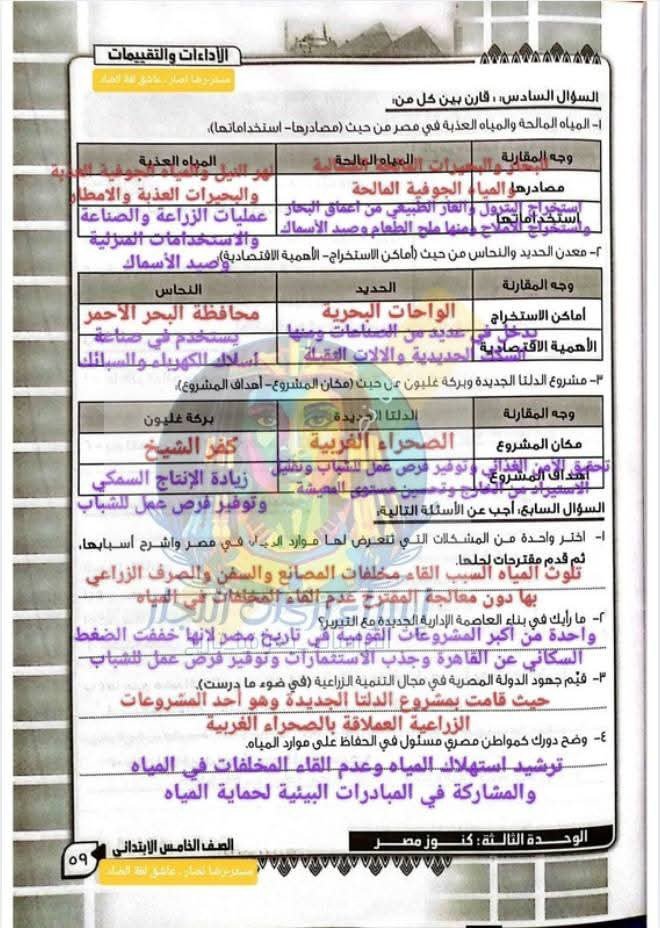 الأداءات والتقييمات
مستر رضا نصار . عاشق لغة الضاد
السؤال السادس: قارن بين كل من:
١- المياه المالحة والمياه العذبة في مصر من حيث (مصادرها - استخداماتها):
وجه المقارنة المياه المالحة المياه العذبة
مصادرها البحار والبحيرات المالحة الشمالية والمياه الجوفية المالحة نهر النيل والمياه الجوفية العذبة والبحيرات العذبة والامطار
استخداماتها استخراج البترول والغاز الطبيعي من اعماق البحار واستخراج الأملاح ومنها ملح الطعام وصيد الأسماك عمليات الزراعة والصناعة والاستخدامات المنزلية وصيد الأسماك
٢- معدن الحديد والنحاس من حيث (أماكن الاستخراج - الأهمية الاقتصادية):
وجه المقارنة الحديد النحاس
أماكن الاستخراج الواحات البحرية محافظة البحر الأحمر
الأهمية الاقتصادية يدخل في عديد من الصناعات ومنها السكك الحديدية والالات الثقيلة يستخدم في صناعة اسلاك الكهرباء والسبائك
٣- مشروع الدلتا الجديدة وبركة غليون من حيث (مكان المشروع - أهداف المشروع):
وجه المقارنة الدلتا الجديدة بركة غليون
مكان المشروع الصحراء الغربية كفر الشيخ
أهداف المشروع تحقيق الامن الغذائي وتوفير فرص عمل للشباب وتقليل الاستيراد من الخارج وتحسين مستوى المعيشة زيادة الإنتاج السمكي وتوفير فرص عمل للشباب
السؤال السابع: أجب عن الأسئلة التالية:
١- اختر واحدة من المشكلات التي تتعرض لها موارد المياه في مصر واشرح أسبابها،
ثم قدم مقترحات لحلها.
تلوث المياه السبب القاء مخلفات المصانع والسفن والصرف الزراعي
بها دون معالجة المقترح عدم القاء المخلفات في المياه
٢- ما رأيك في بناء العاصمة الإدارية الجديدة مع التبرير؟
واحدة من اكبر المشروعات القومية في تاريخ مصر لانها خففت الضغط
السكاني عن القاهرة وجذب الاستثمارات وتوفير فرص عمل للشباب
٣- قيّم جهود الدولة المصرية في مجال التنمية الزراعية (في ضوء ما درست).
حيث قامت بمشروع الدلتا الجديدة وهو أحد المشروعات
الزراعية العملاقة بالصحراء الغربية
٤- وضح دورك كمواطن مصري مسئول في الحفاظ على موارد المياه.
ترشيد استهلاك المياه وعدم القاء المخلفات في المياه
والمشاركة في المبادرات البيئية لحماية المياه
الوحدة الثالثة: كنوز مصر
الصف الخامس الابتدائي
٥٩
مستر رضا نصار . عاشق لغة الضاد